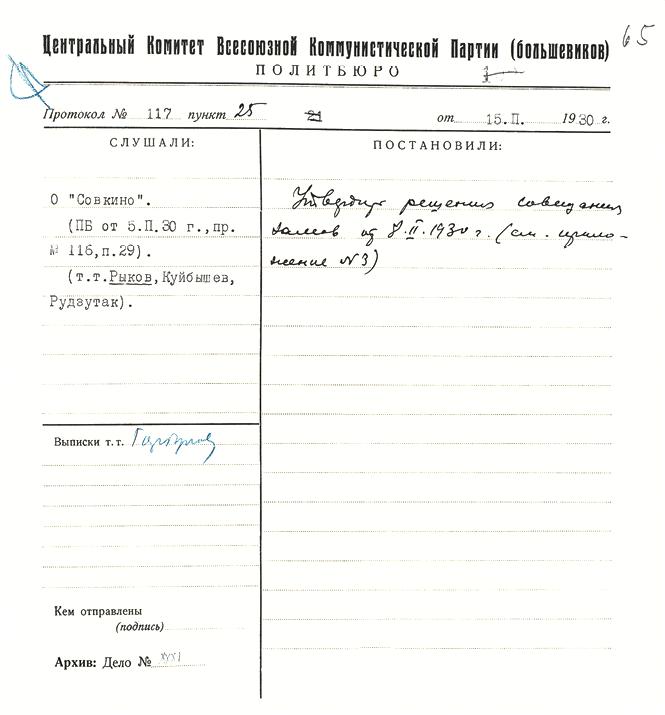 65
Центральный Комитет Всесоюзной Коммунистической Партии (большевиков)
ПОЛИТБЮРО
Протокол № 117 пункт 25 21 от 15.П. 1930 г.
СЛУШАЛИ:
О "Совкино".
(ПБ от 5.П.30 г.,пр.
№ 116,п.29).
(т.т.Рыков,Куйбышев,
Рудзутак).
ПОСТАНОВИЛИ:
Утвердить решения совещания
замов от 8.II.1930 г. (см. прило-
жение №3)
Выписки т.т.
Кем отправлены
(подпись)
Архив: Дело №